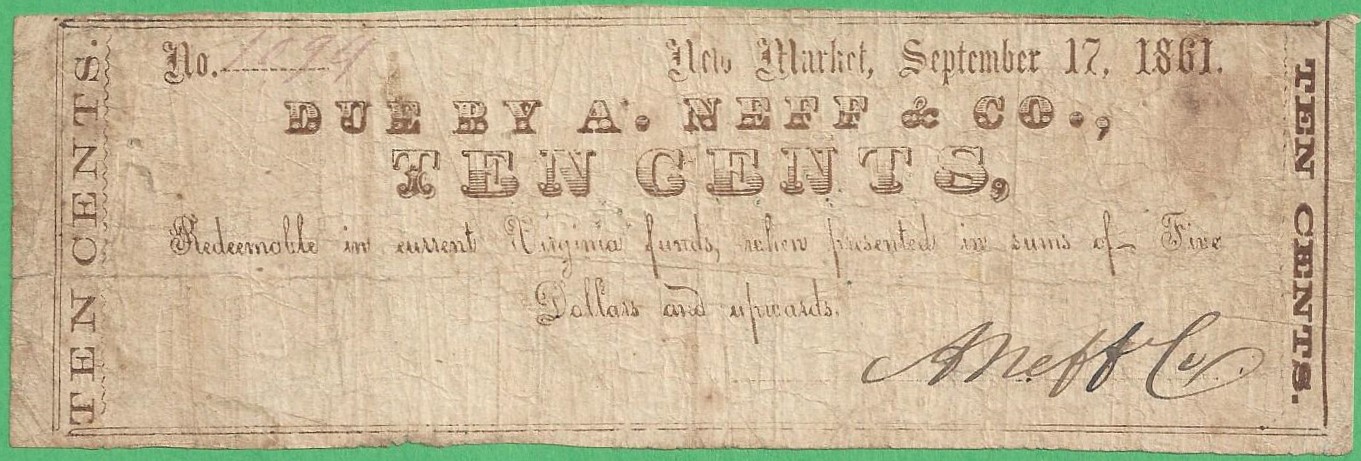 TEN CENTS.
No. 1094
New Market, September 17, 1861.
DUE BY A. NEFF & CO.,
TEN CENTS,
Redeemable in current Virginia funds, when presented in sums of Five
Dollars and upwards.
A Neff Co.
TEN CENTS.